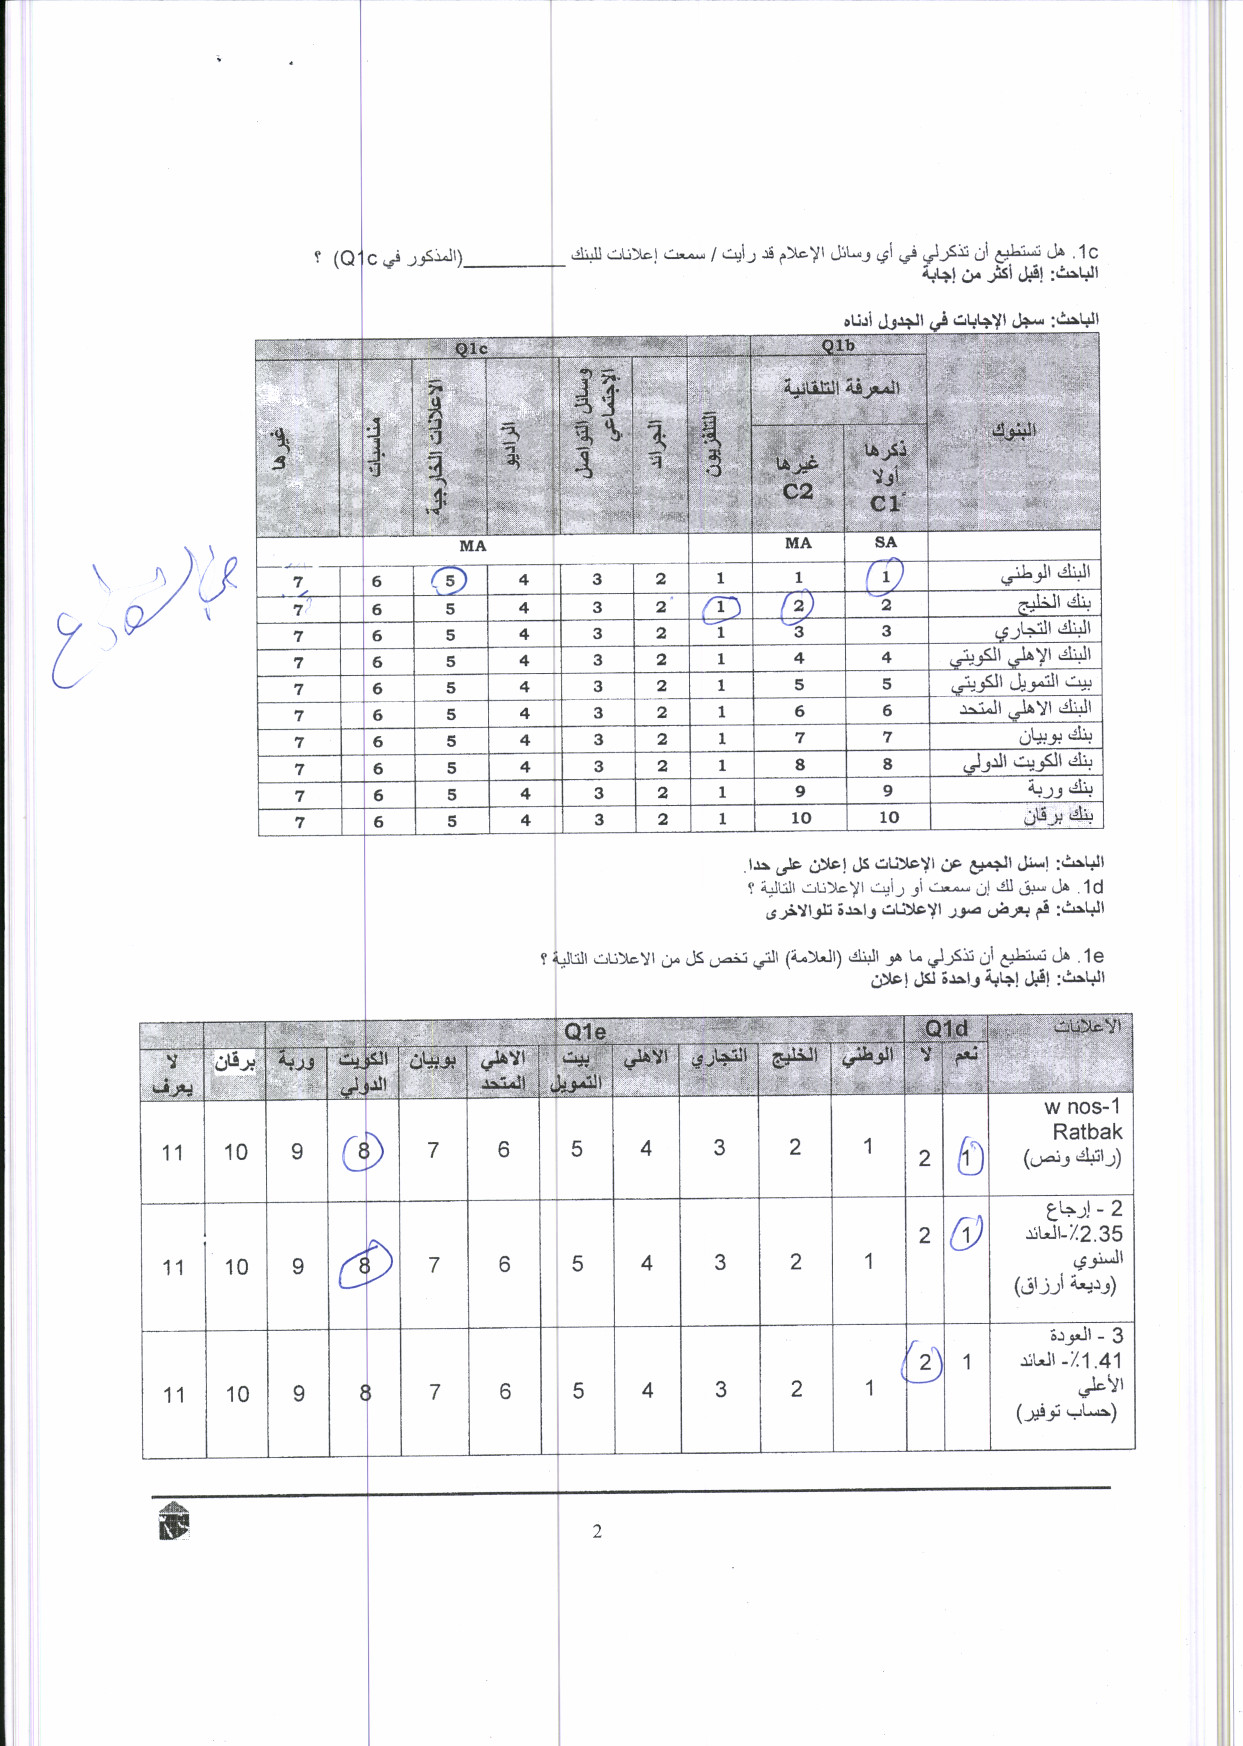 1c. هل تستطيع أن تذكرلي في أي وسائل الإعلام قد رأيت / سمعت إعلانات للبنك __________(المذكور في Q1c) ؟
الباحث: إقبل أكثر من إجابة
الباحث: سجل الإجابات في الجدول أدناه
البنوك Q1b Q1c
المعرفة التلقائية
ذكرها أولا C1 غيرها C2 التلفزيون الجرائد وسائل التواصل الإجتماعي الراديو الاعلانات الخارجية مناسبات غيرها
SA MA MA
البنك الوطني 1 1 1 2 3 4 5 6 7
بنك الخليج 2 2 1 2 3 4 5 6 7
البنك التجاري 3 3 1 2 3 4 5 6 7
البنك الإهلي الكويتي 4 4 1 2 3 4 5 6 7
بيت التمويل الكويتي 5 5 1 2 3 4 5 6 7
البنك الاهلي المتحد 6 6 1 2 3 4 5 6 7
بنك بوبيان 7 7 1 2 3 4 5 6 7
بنك الكويت الدولي 8 8 1 2 3 4 5 6 7
بنك وربة 9 9 1 2 3 4 5 6 7
بنك برقان 10 10 1 2 3 4 5 6 7
في الشارع
الباحث: إسئل الجميع عن الإعلانات كل إعلان على حدا.
1d. هل سبق لك إن سمعت أو رأيت الإعلانات التالية ؟
الباحث: قم بعرض صور الإعلانات واحدة تلوالاخرى
1e. هل تستطيع أن تذكرلي ما هو البنك (العلامة) التي تخص كل من الاعلانات التالية ؟
الباحث: إقبل إجابة واحدة لكل إعلان
الأعلانات Q1d Q1e
نعم لا الوطني الخليج التجاري الاهلي بيت التمويل الاهلي المتحد بوبيان الكويت الدولي وربة برقان لا يعرف
w nos-1
Ratbak
(راتبك ونص) 1 2 1 2 3 4 5 6 7 8 9 10 11
2 - إرجاع
2.35٪-العائد
السنوي
(وديعة أرزاق) 1 2 1 2 3 4 5 6 7 8 9 10 11
3 - العودة
1.41٪- العائد
الأعلي
(حساب توفير) 1 2 1 2 3 4 5 6 7 8 9 10 11
2